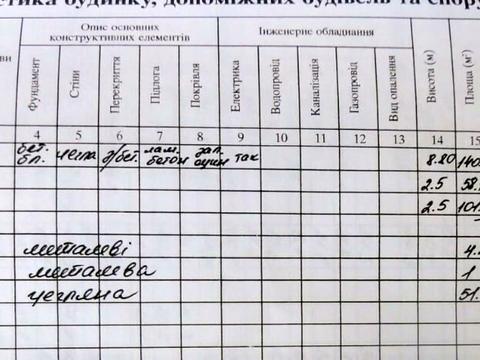 стика будинку, допоміжних будівель та спору
Опис основних конструктивних елементів
Інженерне обладнання
ви
Фундамент Стіни Перекриття Підлога Покрівля Електрика Водопровід Каналізація Газопровід Вид опалення Висота (м) Площа (м²)
4 5 6 7 8 9 10 11 12 13 14 15
бет. лам. зал.
бл. цегла з/бет. бетон оцин так 8.80 140.
2.5 58.
2.5 101.
металеві 4.
металева 1
цегляна 51.